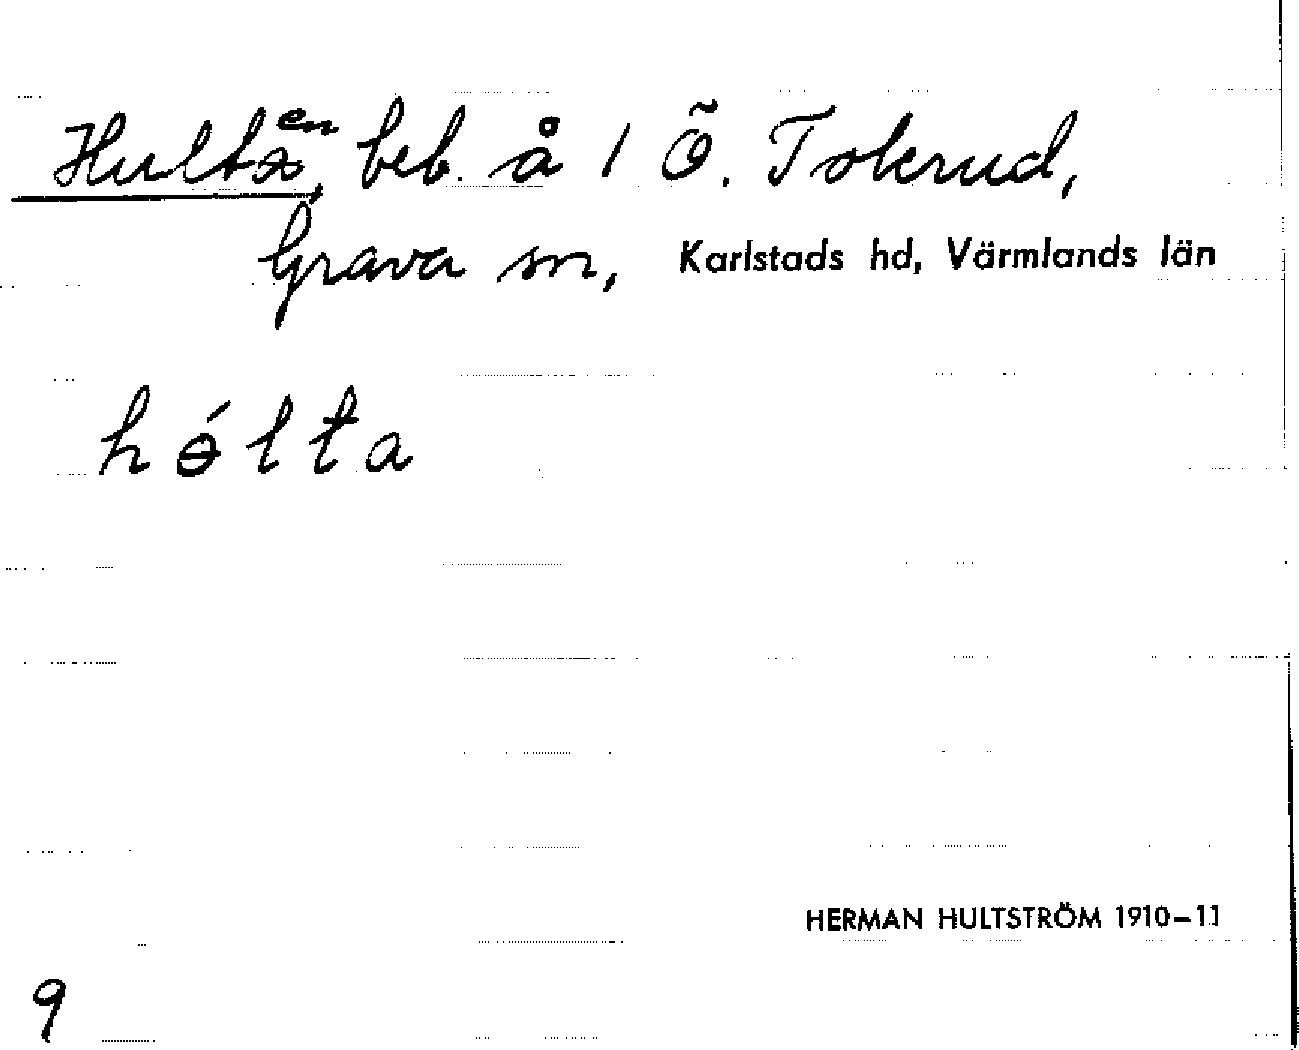 Hulten, beb. å 1 Ö. Tolerud,
Grava sn, Karlstads hd, Värmlands län
hɵ́lta
HERMAN HULTSTRÖM 1910–11
9